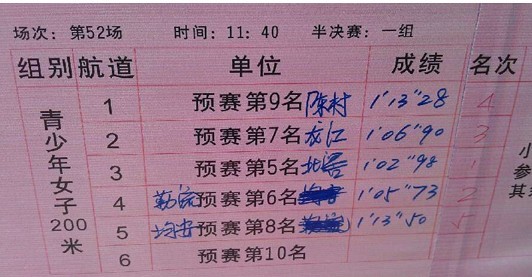 场次：第52场 时间：11：40 半决赛：一组
组别 航道 单位 成绩 名次
青少年女子200米
1 预赛第9名 陈村 1'13"28 4
2 预赛第7名 龙江 1'06"90 3
3 预赛第5名 北滘 1'02"98 1
4 勒流 预赛第6名 1'05"73 2
5 均安 预赛第8名 1'13"50 5
6 预赛第10名
小
参
其